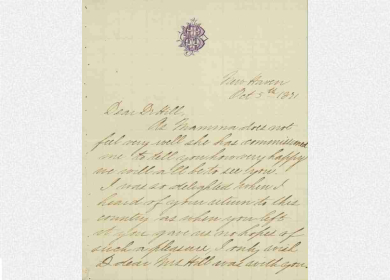 New Haven
Oct 5th 1871
Dear Dr Hill,
As Mamma does not
feel very well she has commissioned
me to tell you how very happy
we will all be to see you.
I was so delighted when I
heard of your return to this
country as when you left
it you gave us no hopes of
such a pleasure. I only wish
dear Mrs Hill was with you.